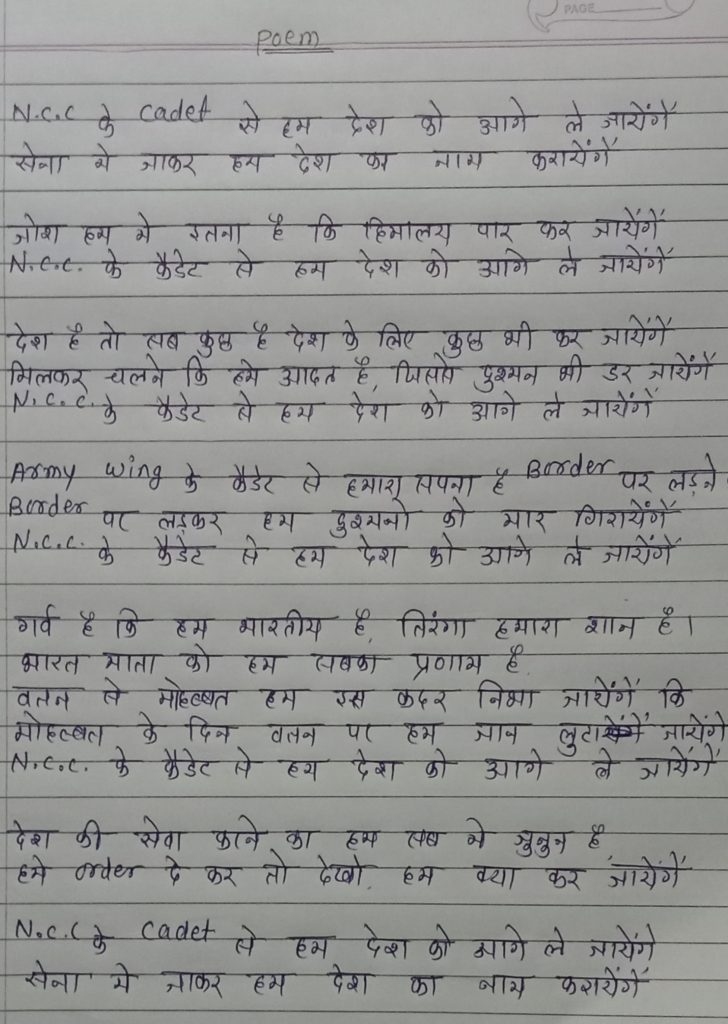 PAGE
Poem
N.C.C के Cadet से हम देश को आगे ले जायेंगें
सेना मे जाकर हम देश का नाम करायेंगें
जोश हम मे इतना है कि हिमालय पार कर जायेंगें
N.C.C. के कैडेट से हम देश को आगे ले जायेंगें
देश है तो सब कुछ है देश के लिए कुछ भी कर जायेंगें
मिलकर चलने कि हमे आदत है, जिससे दुश्मन भी डर जायेंगें
N.C.C. के कैडेट से हम देश को आगे ले जायेंगें
Army wing के कैडेट से हमारा सपना है Border पर लड़ने
Border पर लड़कर हम दुश्मनो को मार गिरायेंगें
N.C.C. के कैडेट से हम देश को आगे ले जायेंगें
गर्व है कि हम भारतीय है, तिरंगा हमारा शान है।
भारत माता को हम सबका प्रणाम है
वतन से मोहब्बत हम इस कदर निभा जायेंगें कि
मोहब्बत के दिन वतन पर हम जान लुटा जायेंगे
N.C.C. के कैडेट से हम देश को आगे ले जायेंगें
देश की सेवा करने का हम सब मे जुनुन है
हमे order दे कर तो देखो, हम क्या कर जायेंगें
N.C.C के Cadet से हम देश को आगे ले जायेंगे
सेना मे जाकर हम देश का नाम करायेंगें